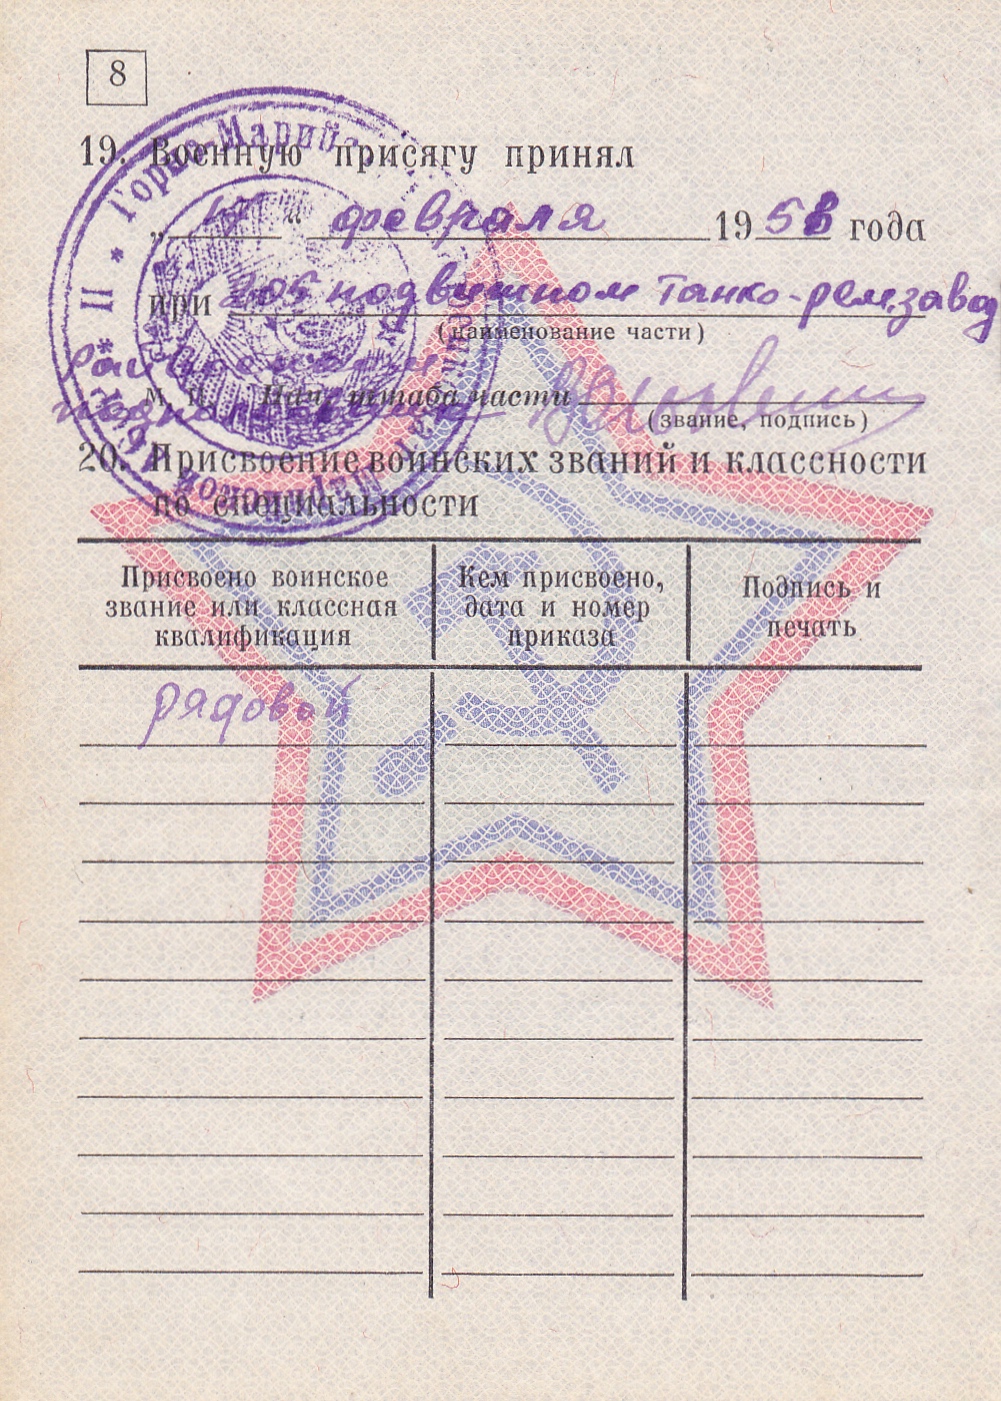 8
19. Военную присягу принял
„ “ февраля 1958 года
при 205 подвижном танко-рем.завод
(наименование части)
М. П. Нач. штаба части
(звание, подпись)
20. Присвоение воинских званий и классности
по специальности
Присвоено воинское
звание или классная
квалификация
Кем присвоено,
дата и номер
приказа
Подпись и
печать
рядовой